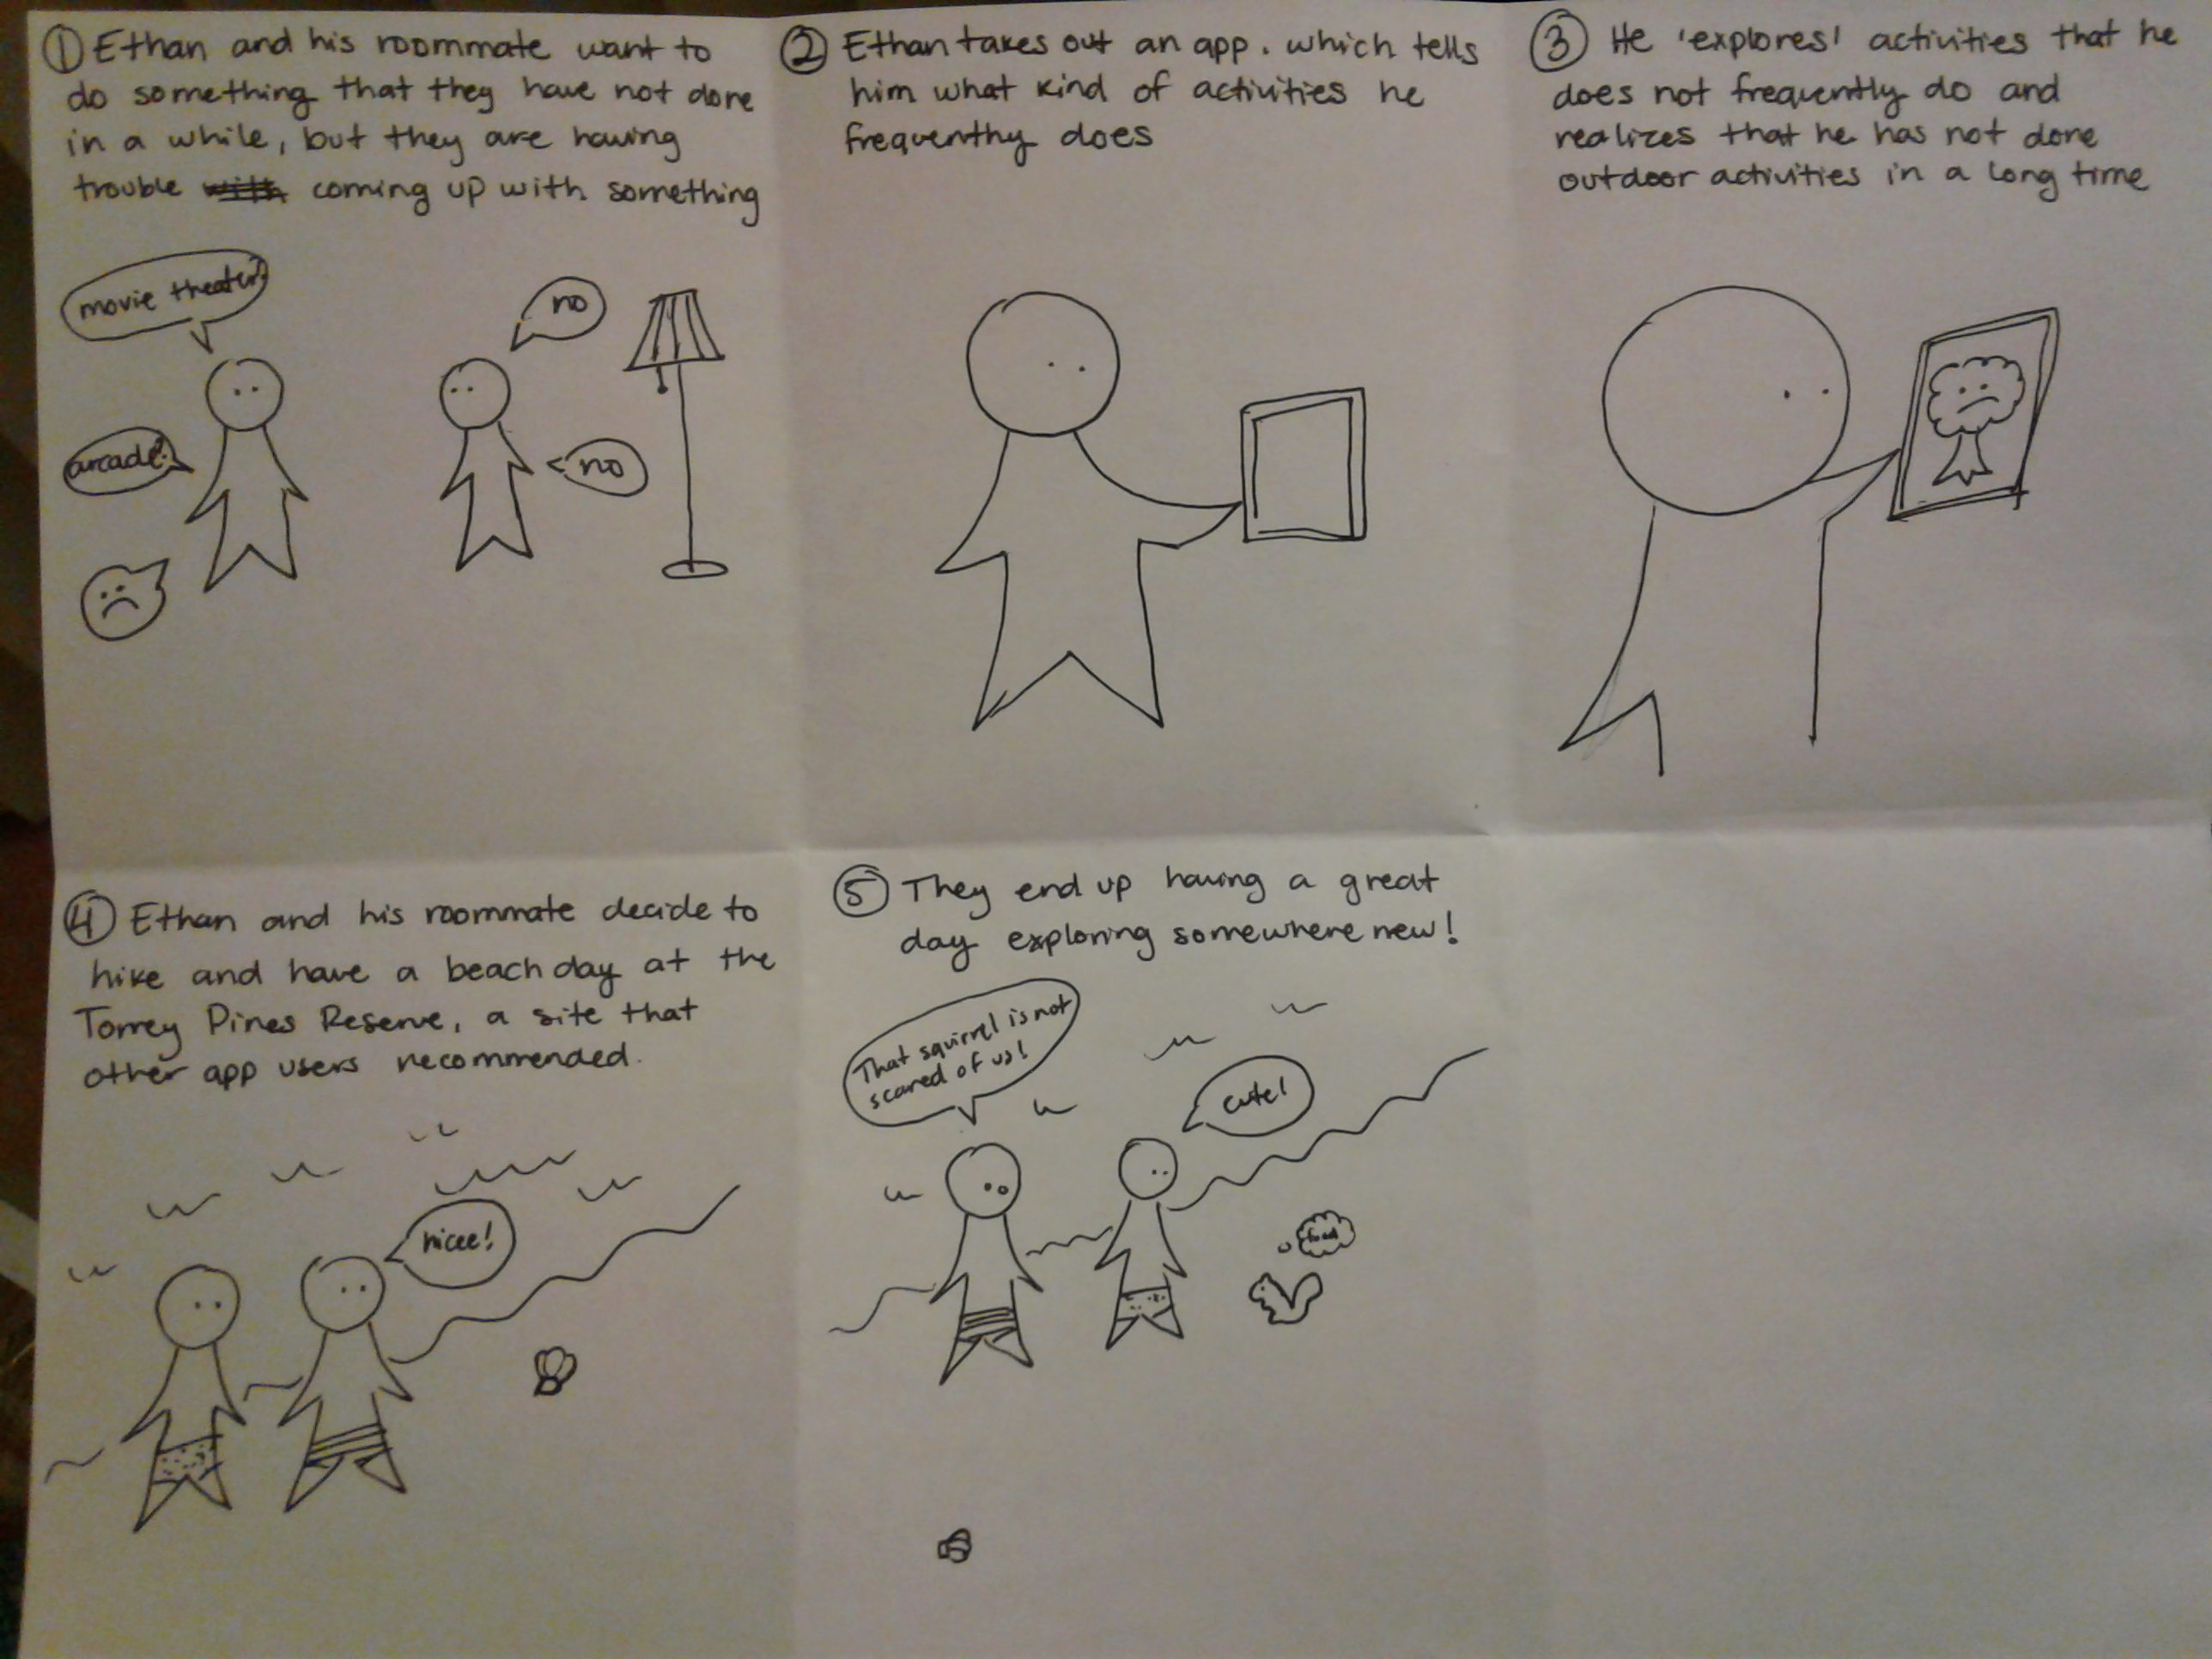 ① Ethan and his roommate want to
do something that they have not done
in a while, but they are having
trouble coming up with something
movie theater?
arcade?
no
no
② Ethan takes out an app, which tells
him what kind of activities he
frequently does
③ He 'explores' activities that he
does not frequently do and
realizes that he has not done
outdoor activities in a long time
④ Ethan and his roommate decide to
hike and have a beach day at the
Torrey Pines Reserve, a site that
other app users recommended.
nicee!
⑤ They end up having a great
day exploring somewhere new!
That squirrel is not
scared of us!
cute!